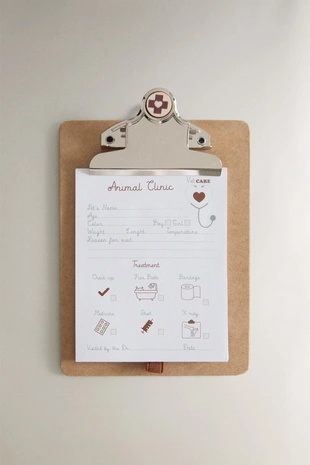 Vet CARE
Animal Clinic
Pet's Name
Age
Color Boy Girl
Weight Length Temperature
Reason for visit
Treatment
Check up Bandage
Medicine Shot X-ray
Visited by the Dr. Date